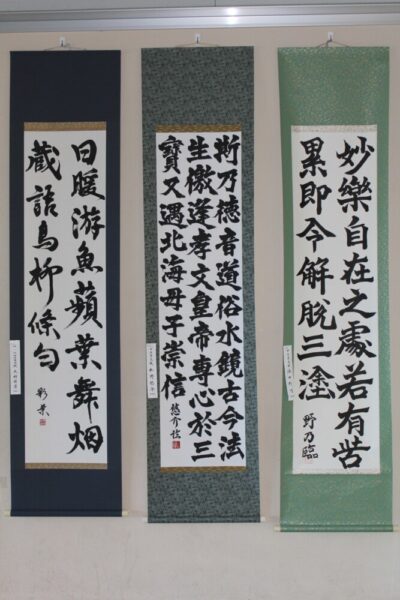 妙樂自在之處若有苦
累即令解脱三塗
野乃臨
斯乃徳音道俗水鏡古今法
生儌逢孝文皇帝專心於三
寶又遇北海母子崇信
悠介臨
日暖游魚蘋葉舞烟
藏語鳥柳條勻